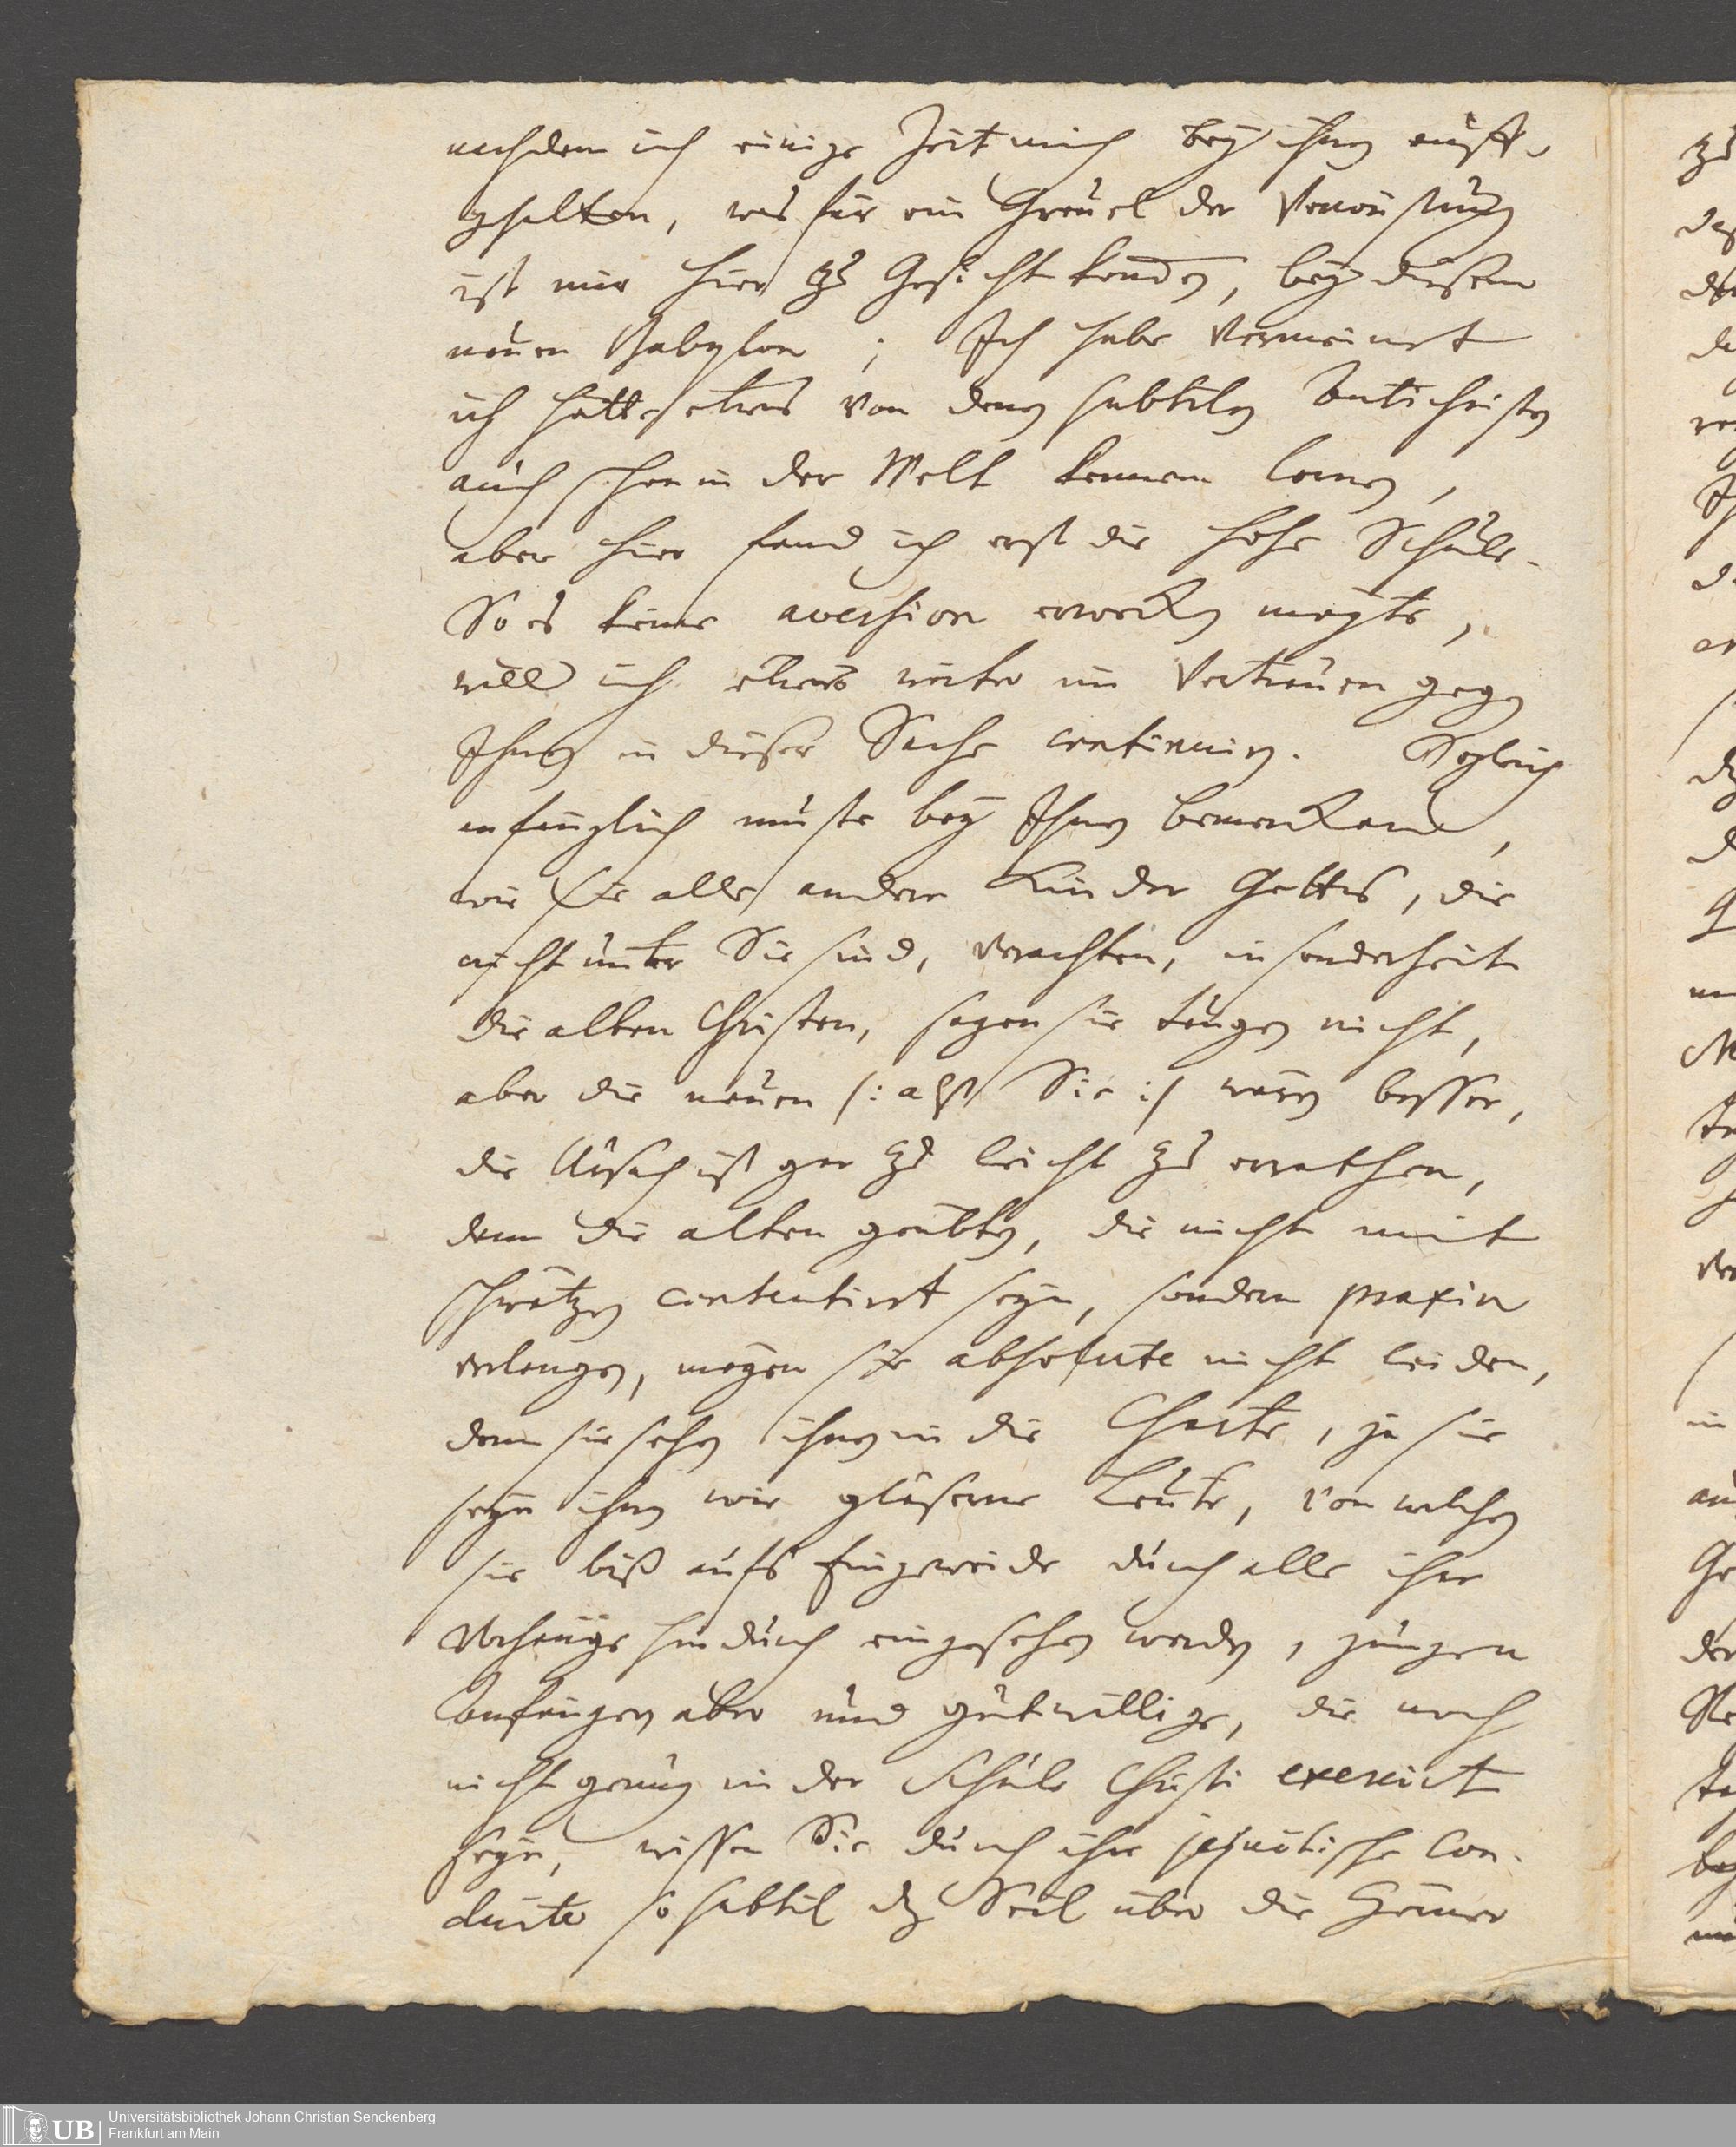 nachdem ich einige Zeit mich bey ihnen auff-
gehalten, was für ein Greuel der Verwüstung
ist mir hier zu Gesicht kommen, bey diesem
neuen Babylon; Ich habe vermeinet
ich hätte etwas von denen subtilen Antichristen
auch schon in der Welt kennen lernen,
aber hier fand ich erst die hohe Schule.
So es keine aversion erwecken mögte,
will ich etwas weiter im Vertrauen gegen
Ihnen in dieser Sache continuiren. Sogleich
anfänglich muste bey Ihnen bemercken,
wie sie alle andere Kinder Gottes, die
nicht unter Sie sind, verachten, insonderheit
die alten Christen, sagen sie taugen nicht,
aber die neuen /: alß Sie :/ wären besser,
die Ursach ist gar zu leicht zu errathen,
denn die alten geübten, die nicht mit
schwätzen contentirt seyn, sondern praxin
verlangen, mögen sie absolute nicht leiden,
denn sie sehen ihnen in die Charte, ja sie
seyn ihnen wie gläserne Leute, von welchen
sie biß aufs Eingeweide durch alle ihre
Vorhänge hindurch eingesehen werden, jungen
Anfängern aber und gutwillige, die noch
nicht genug in der Schule Christi exercirt
seyn, wissen Sie durch ihre jesuitische Con-
duite so subtil dz Seil über die Hörner
Universitätsbibliothek Johann Christian Senckenberg
UB Frankfurt am Main